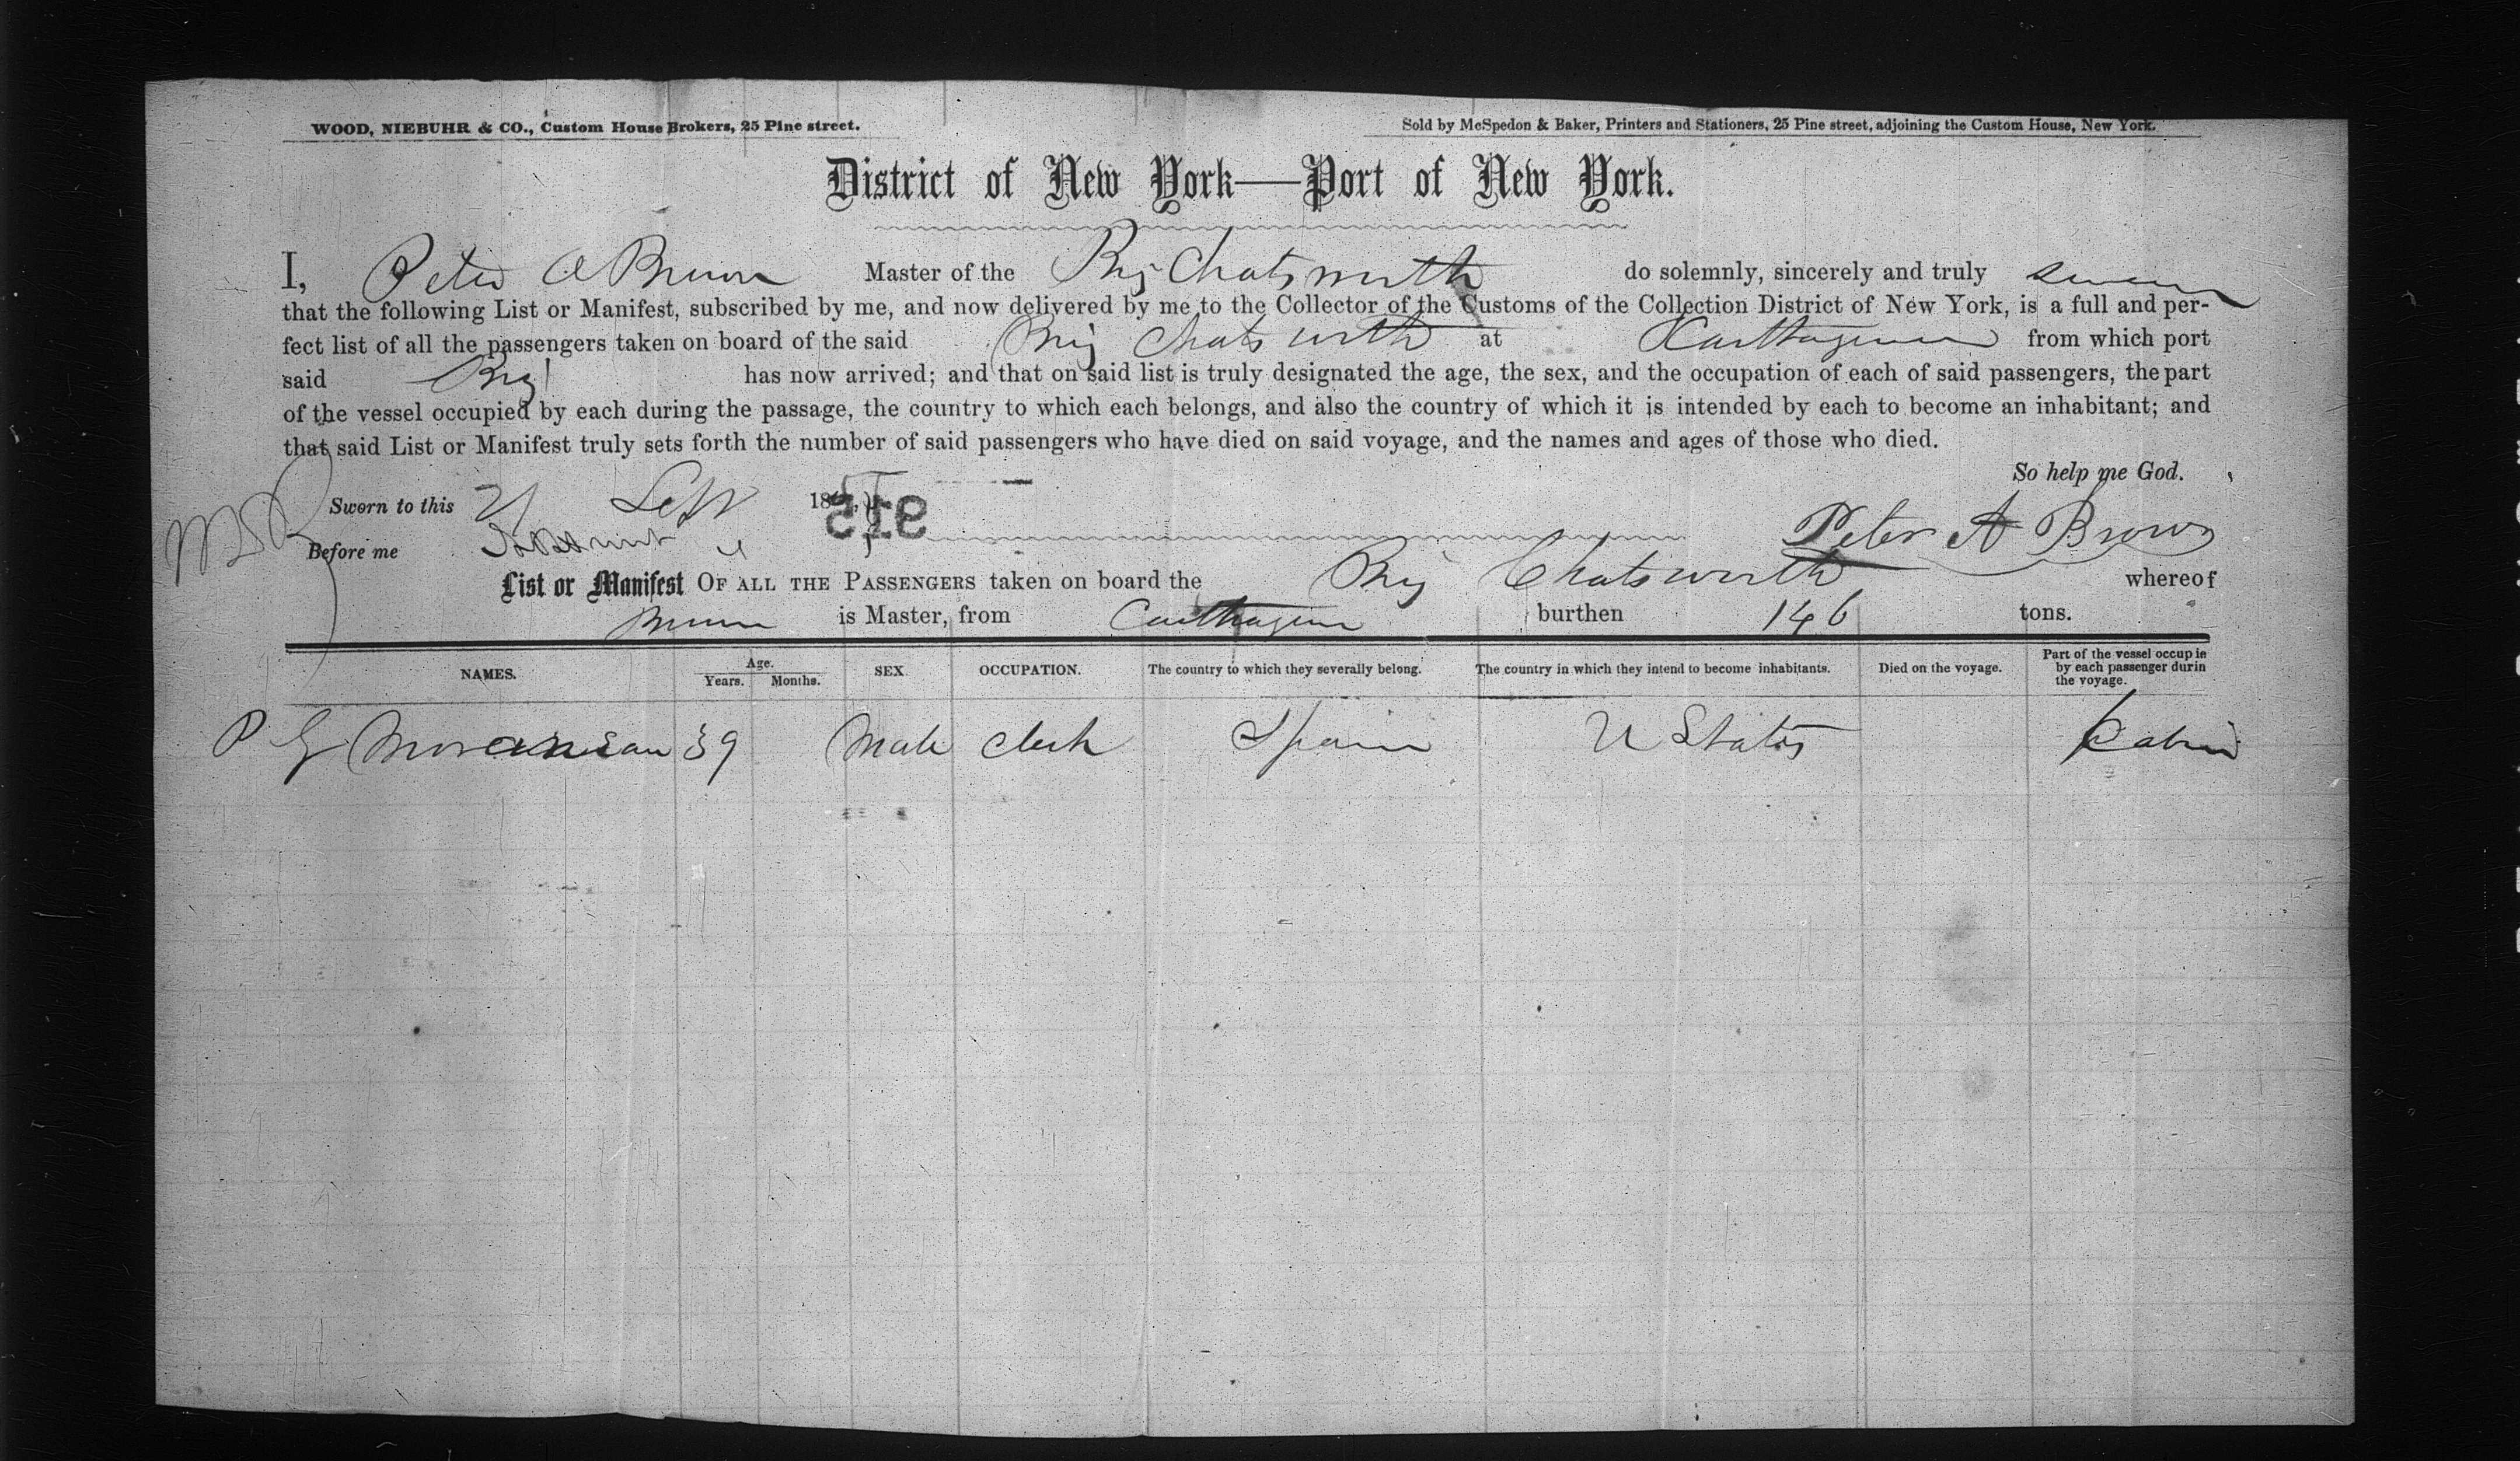 WOOD, NIEBUHR & CO., Custom House Brokers, 25 Pine street.
Sold by McSpedon & Baker, Printers and Stationers, 25 Pine street, adjoining the Custom House, New York.
District of New York—Port of New York.
I, Peter A Brown Master of the Brig Chatsworth do solemnly, sincerely and truly swear
that the following List or Manifest, subscribed by me, and now delivered by me to the Collector of the Customs of the Collection District of New York, is a full and per-
fect list of all the passengers taken on board of the said Brig Chatsworth at Carthagena from which port
said Brig has now arrived; and that on said list is truly designated the age, the sex, and the occupation of each of said passengers, the part
of the vessel occupied by each during the passage, the country to which each belongs, and also the country of which it is intended by each to become an inhabitant; and
that said List or Manifest truly sets forth the number of said passengers who have died on said voyage, and the names and ages of those who died.
So help me God.
Sworn to this 21 Sept 186
915
Before me
Peter A Brown
List or Manifest OF ALL THE PASSENGERS taken on board the Brig Chatsworth whereof
Brown is Master, from Carthagena burthen 146 tons.
NAMES. Age. Years. Months. SEX. OCCUPATION. The country to which they severally belong. The country in which they intend to become inhabitants. Died on the voyage. Part of the vessel occupie by each passenger durin the voyage.
P G 39 Male Clerk Spain U States Cabin